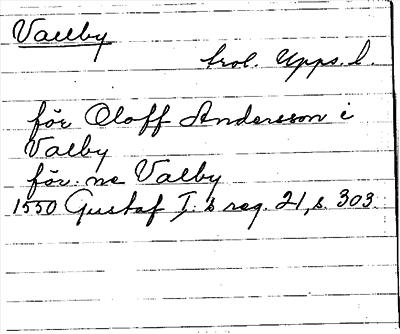 Vallby
trol. Upps. l.
för Oloff Andersson i
Valby
för. ne Valby
1550 Gustaf I:s reg. 21, s. 303.